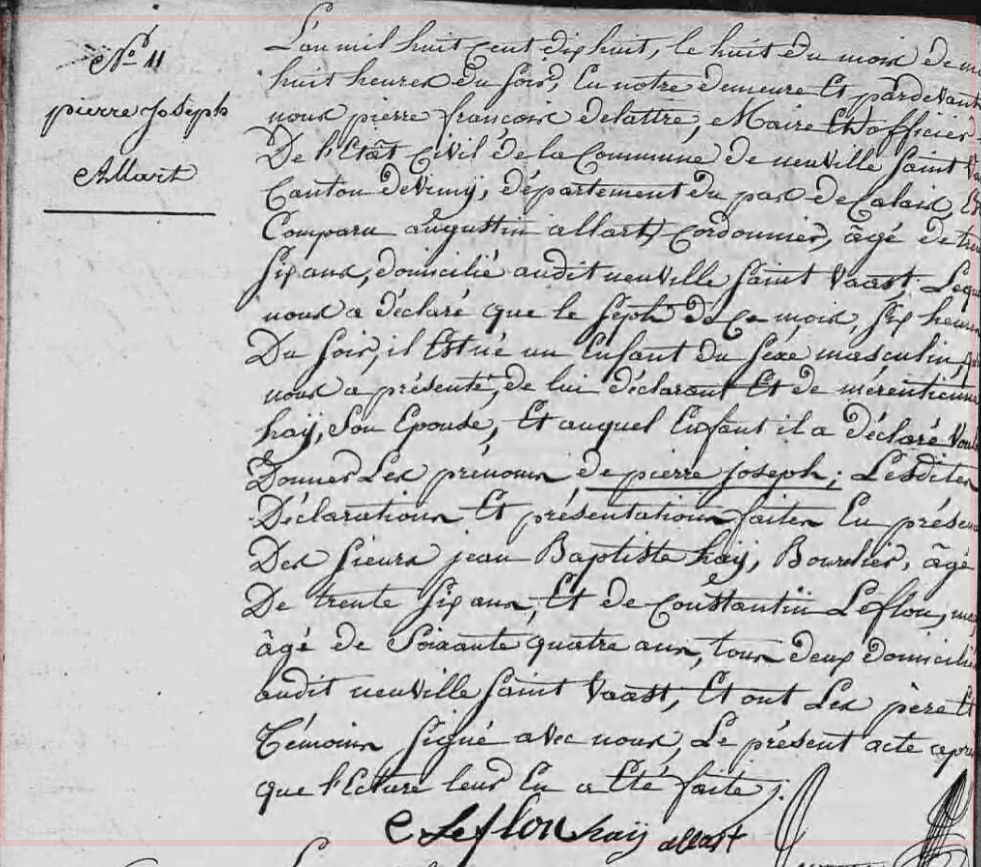 No 11
pierre Joseph
Allart
L'an mil huit cent dix huit, le huit du mois de
huit heures du soir, En notre demeure Et pardevant
nous pierre françois delattre, Maire Et officier
De l'Etât Civil de la Commune de neuville Saint Va
Canton de Vimÿ, département du pas de Calais, Est
Comparu augustin allart, Cordonnier, âgé de tren
Six ans, domicilié audit neuville Saint Vaast. Leque
nous a déclaré que le Sept de Ce mois, Six heures
Du Soir, il Est né un Enfant du Séxe masculin,
nous a présenté, de lui déclarant Et de mérentienne
haÿ, Son Epouse, Et auquel Enfant il a déclaré Voul
Donner Les prénoms de pierre joseph; Lesdites
Déclarations Et présentations faites En présen
Des Sieurs jean Baptiste haÿ, Bourlier, âgé
De trente Six ans, Et de Constantin Leflon,
âgé de Soixante quatre ans, tous deux domicilié
audit neuville Saint Vaast, Et ont Les père Et
Témoins Signé avec nous, Le présent acte après
que l'Ecture leur En a Eté faite.
C Leflon haÿ allart